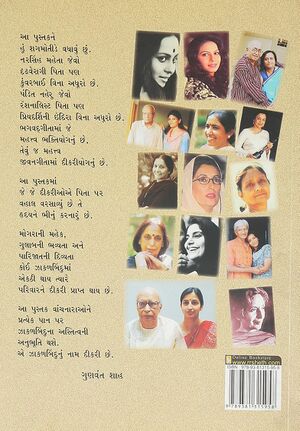 આ પુસ્તકને
હું શગમોતીડે વધાવું છું.
નરસિંહ મહેતા જેવો
દઢવૈરાગી પિતા પણ
કુંવરબાઈ વિના અધૂરો છે.
પંડિત નહેરુ જેવો
રેશનાલિસ્ટ પિતા પણ
પ્રિયદર્શિની ઇંદિરા વિના અધૂરો છે.
ભગવદ્ગીતામાં જે
મહત્ત્વ ભક્તિયોગનું છે.
તેવું જ મહત્ત્વ
જીવનગીતામાં દીકરીયોગનું છે.
આ પુસ્તકમાં
જે જે દીકરીઓએ પિતા પર
વહાલ વરસાવ્યું છે તે
હૃદયને ભીનું કરનારું છે.
મોગરાની મહેક,
ગુલાબની ભવ્યતા અને
પારિજાતની દિવ્યતા
કોઈ ઝાકળબિંદુમાં
એકઠી થાય ત્યારે
પરિવારને દીકરી પ્રાપ્ત થાય છે.
આ પુસ્તક વાંચનારાઓને
પ્રત્યેક પાન પર
ઝાકળબિંદુના અસ્તિત્વની
અનુભૂતિ થશે.
એ ઝાકળબિંદુનું નામ દીકરી છે.
ગુણવંત શાહ
Online Bookstore
ISBN : 978-93-81315-95-8
9789381315958